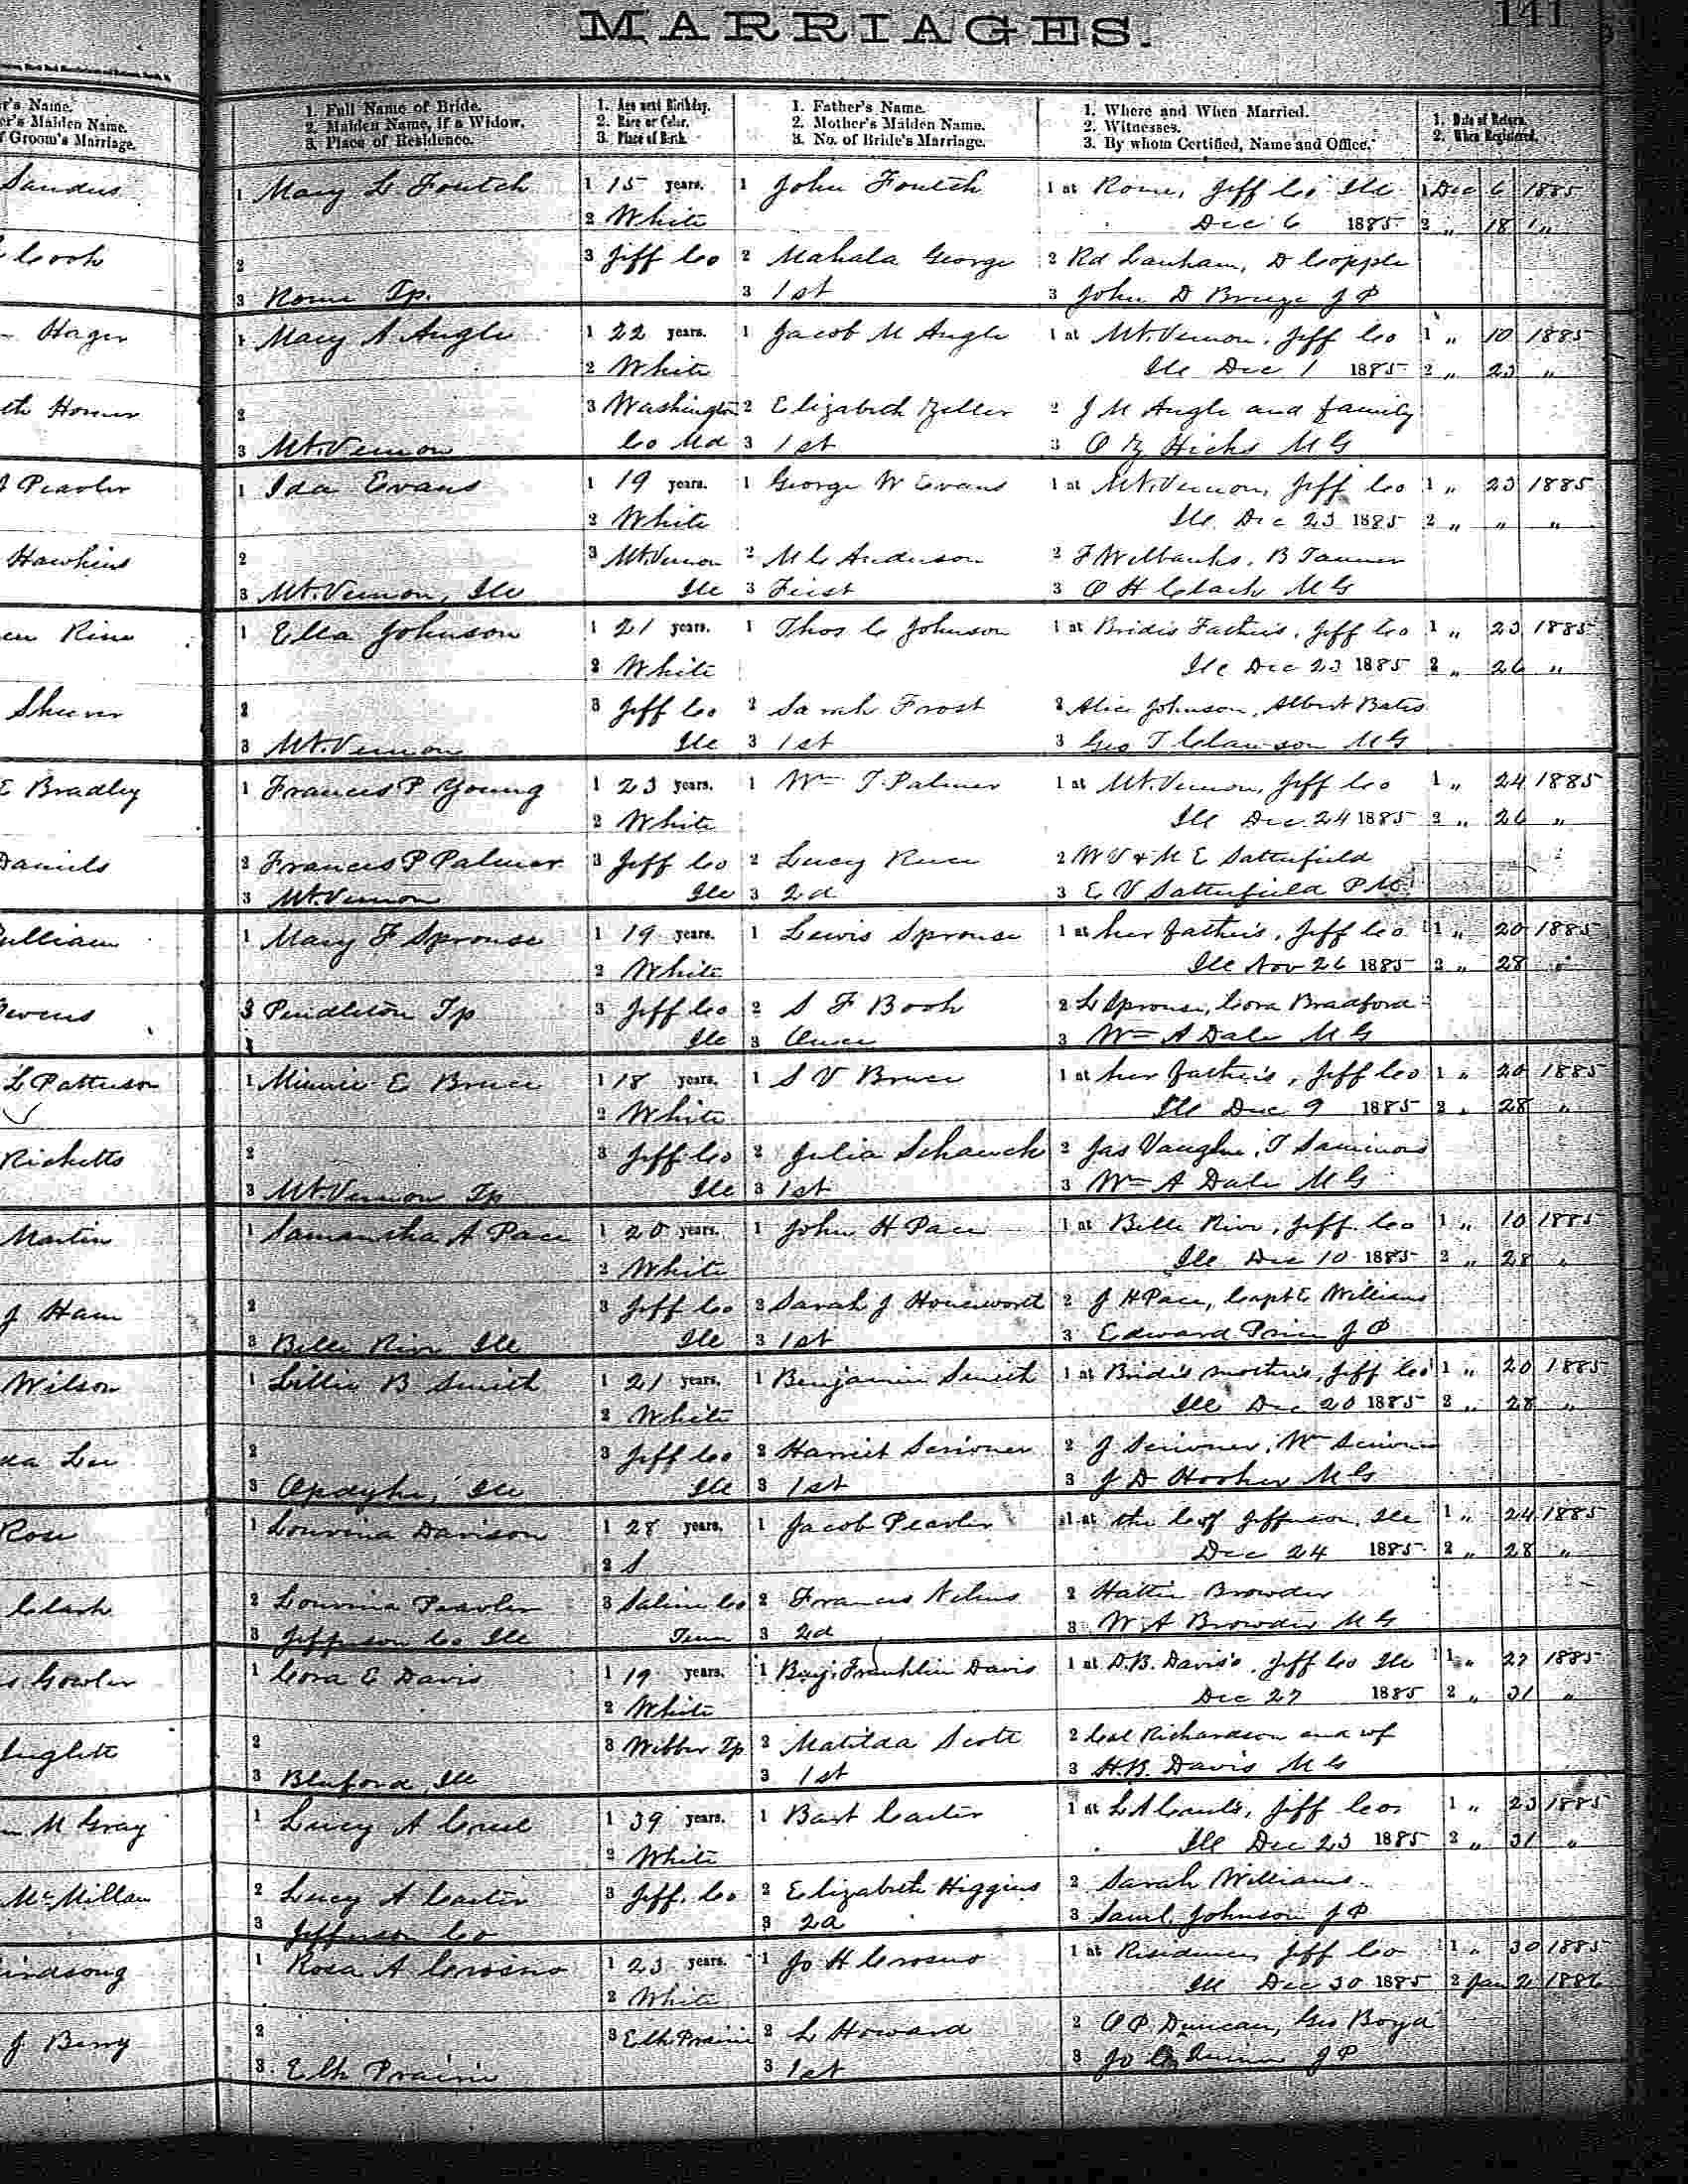 MARRIAGES.
141
r's Name.
er's Maiden Name.
f Groom's Marriage.
1. Full Name of Bride.
2. Maiden Name, if a Widow.
3. Place of Residence.
1. Age next Birthday.
2. Race or Color.
3. Place of Birth.
1. Father's Name.
2. Mother's Maiden Name.
3. No. of Bride's Marriage.
1. Where and When Married.
2. Witnesses.
3. By whom Certified, Name and Office.
1. Date of Return.
2. When Registered.
Sandus 1 Mary L Foutch 1 15 years. 1 John Foutch 1 at Rome, Jeff Co Ill 1 Dec 6 1885
2 White Dec 6 1885 2 " 18 "
Cook 2 3 Jeff Co 2 Mahala George 2 Rd Lanham, D Copple
3 Rome Tp. 3 1st 3 John D J P
Hager 1 Mary A Angle 1 22 years. 1 Jacob M Angle 1 at Mt. Vernon, Jeff Co 1 " 10 1885
2 White Ill Dec 1 1885 2 " 23 "
th Homer 2 3 Washington 2 Elizabeth Zeller 2 J M Angle and family
3 Mt. Vernon Co Md 3 1st 3 O Z Hicks M G
Peavler 1 Ida Evans 1 19 years. 1 George W Evans 1 at Mt. Vernon, Jeff Co 1 " 23 1885
2 White Ill Dec 23 1885 2 " " "
Hawkins 2 3 Mt. Vernon 2 M C Anderson 2 F Wilbanks, B Tanner
3 Mt. Vernon, Ill Ill 3 First 3 O H Clark M G
Rine 1 Ella Johnson 1 21 years. 1 Thos C Johnson 1 at Brides Fathers, Jeff Co 1 " 23 1885
2 White Ill Dec 23 1885 2 " 26 "
2 3 Jeff Co 2 Sarah Frost 2 Alice Johnson, Albert Bates
3 Mt. Vernon Ill 3 1st 3 Geo T Clawson M G
E Bradley 1 Frances P Young 1 23 years. 1 Wm T Palmer 1 at Mt. Vernon, Jeff Co 1 " 24 1885
2 White Ill Dec 24 1885 2 " 26 "
Daniels 2 Frances P Palmer 3 Jeff Co 2 Lucy 2 W V & M E Satterfield
3 Mt. Vernon Ill 3 2d 3 E V Satterfield
ulliam 1 Mary F Sprouse 1 19 years. 1 Lewis Sprouse 1 at her fathers, Jeff Co 1 " 20 1885
2 White Ill Nov 26 1885 2 " 28 "
3 Pendleton Tp 3 Jeff Co 2 S F Book 2 L Sprouse, Cora Bradford
Ill 3 Once 3 Wm A Dale M G
L Patterson 1 Minnie E Bruce 1 18 years. 1 S V Bruce 1 at her fathers, Jeff Co 1 " 20 1885
2 White Ill Dec 9 1885 2 " 28 "
Ricketts 2 3 Jeff Co 2 Julia Schanck 2 Jas Vaughn, T Sammons
3 Mt. Vernon Tp Ill 3 1st 3 Wm A Dale M G
Martin 1 Samantha A Pace 1 20 years. 1 John H Pace 1 at Belle Rive, Jeff. Co 1 " 10 1885
2 White Ill Dec 10 1885 2 " 28 "
J Ham 2 3 Jeff Co 2 Sarah J 2 J H Pace, Williams
3 Belle Rive Ill Ill 3 1st 3 Edward Price J P
Wilson 1 Lillie B Smith 1 21 years. 1 Benjamin Smith 1 at Brides mothers, Jeff Co 1 " 20 1885
2 White Ill Dec 20 1885 2 " 28 "
da Lee 2 3 Jeff Co 2 Harriet Scrivner 2 J Scrivner, Wm Scrivner
3 Opdyke, Ill Ill 3 1st 3 J D Hooker M G
Rose 1 Louvina Davison 1 28 years. 1 Jacob Peavler 1 at the Co of Jefferson, Ill 1 " 24 1885
2 S Dec 24 1885 2 " 28 "
Clark 2 Louvina Peavler 3 Saline Co 2 Frances 2 Hattie Browder
3 Jefferson Co Ill Tenn 3 2d 3 W. A Browder M G
Gowler 1 Cora E Davis 1 19 years. 1 Benj. Franklin Davis 1 at D.B. Davis's, Jeff Co Ill 1 " 27 1885
2 White Dec 27 1885 2 " 31 "
2 3 Webber Tp 2 Matilda Scott 2 Richardson and wf
3 Bluford, Ill 3 1st 3 H.B. Davis M G
M Gray 1 Lucy A 1 39 years. 1 Bart Carter 1 at Jeff Co 1 " 23 1885
2 White Ill Dec 23 1885 2 " 31 "
McMillan 2 Lucy A Carter 3 Jeff. Co 2 Elizabeth Higgins 2 Sarah Williams
3 Jefferson Co 3 2d 3 Saml Johnson J P
indsong 1 Rosa A Crosno 1 23 years. 1 Jo H Crosno 1 at Residence, Jeff Co 1 " 30 1885
2 White Ill Dec 30 1885 2 Jan 2 1886
J Berry 2 3 Elk Prairie 2 L Howard 2 O P. Duncan, Geo Boyd
3. Elk Prairie 3 1st 3 J P